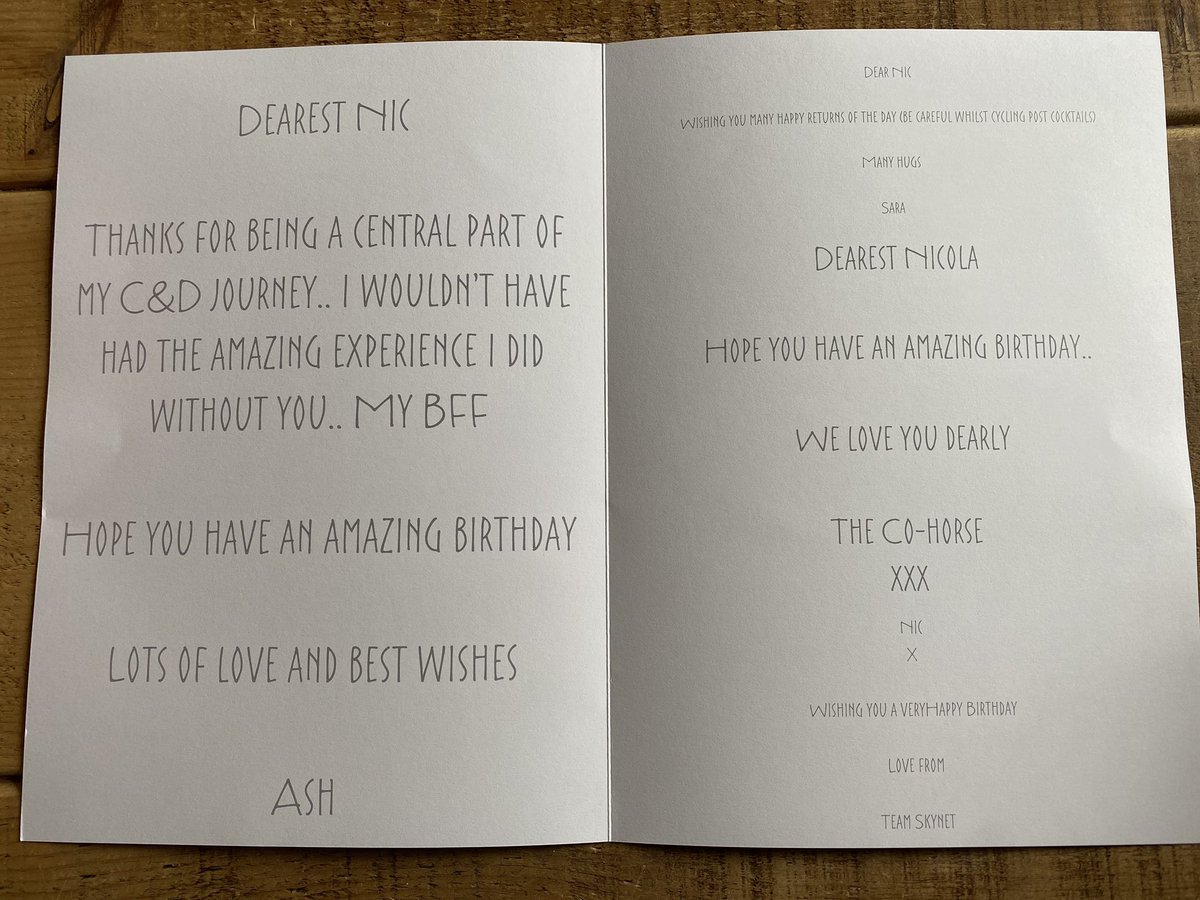 Dearest Nic
Thanks for being a central part of
my C&D journey.. I wouldn't have
had the amazing experience I did
without you.. My BFF
Hope you have an amazing birthday
Lots of love and best wishes
Ash
Dear Nic
Wishing you many happy returns of the day (be careful whilst cycling post cocktails)
Many hugs
Sara
Dearest Nicola
Hope you have an amazing birthday..
We love you dearly
The Co-horse
xxx
Nic
x
Wishing you a veryHappy Birthday
Love from
Team Skynet